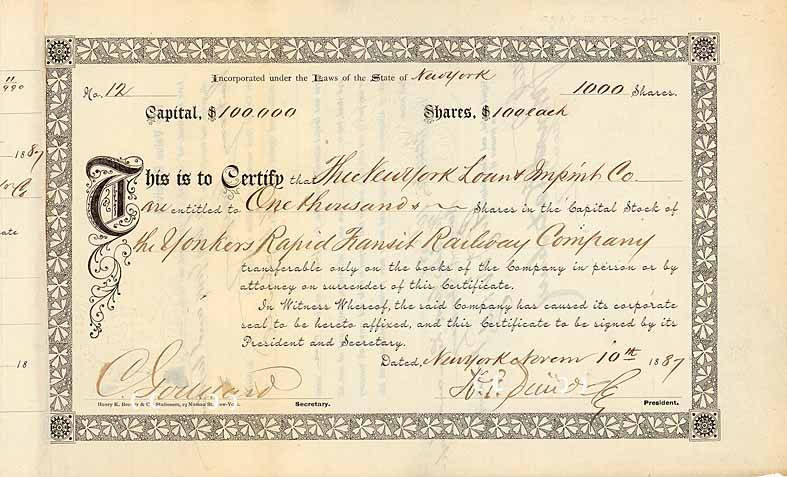 Incorporated under the Laws of the State of New York
No. 12
1000 Shares.
Capital, $100,000
Shares, $100 each
This is to Certify that The New York Loan & Impmt Co.
are entitled to One thousand Shares in the Capital Stock of
the Yonkers Rapid Transit Railway Company
transferable only on the books of the Company in person or by
attorney on surrender of this Certificate.
In Witness Whereof, the said Company has caused its corporate
seal to be hereto affixed, and this Certificate to be signed by its
President and Secretary.
Dated, New York Novem 10th 1887
Secretary.
President.
Henry K. & Stationers, 15 Nassau St. New-York.
11
990
1887
Co
ate
18